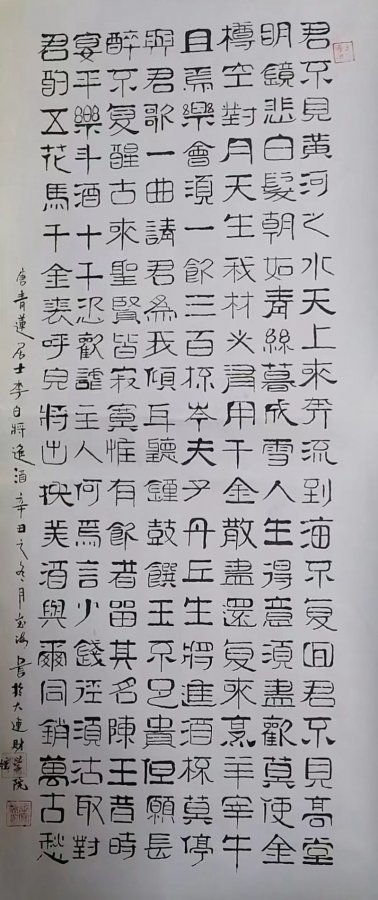 君不見黃河之水天上來奔流到海不复回君不見高堂
明鏡悲白髮朝如青絲暮成雪人生得意須盡歡莫使金
樽空對月天生我材必有用千金散盡還复來烹羊宰牛
且為樂會須一飲三百杯岑夫子丹丘生將進酒杯莫停
與君歌一曲請君為我傾耳聽鍾鼓饌玉不足貴但願長
醉不复醒古來聖賢皆寂寞惟有飲者留其名陳王昔時
宴平樂斗酒十千恣歡謔主人何為言少錢徑須沽取對
君酌五花馬千金裘呼兒將出換美酒與爾同銷萬古愁
唐青蓮居士李白將進酒辛丑之冬月書於大連財學院